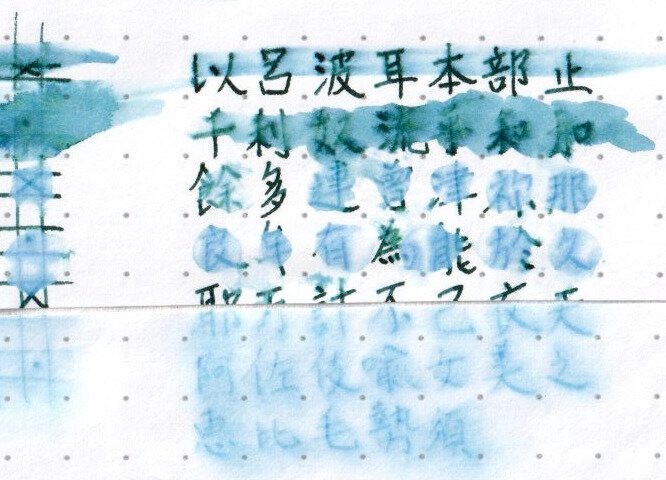 以呂波耳本部止
千利奴流乎和加
餘多連曽津祢那
良牟有為能於久
耶万計不己衣天
阿佐伎喩女美之
恵比毛勢須